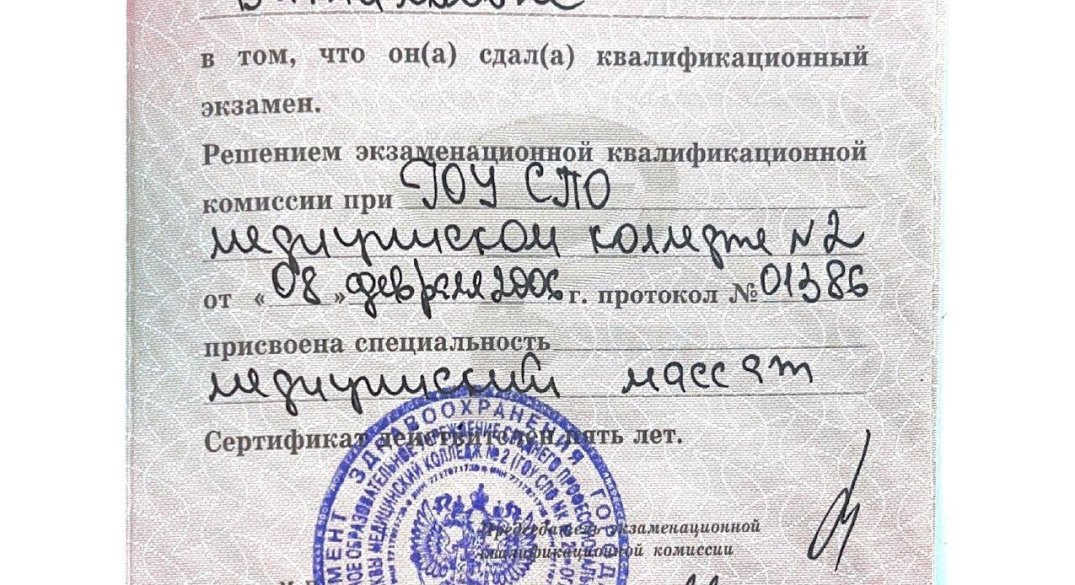 в том, что он(а) сдал(а) квалификационный
экзамен.
Решением экзаменационной квалификационной
комиссии при ГОУ СПО
медицинском колледже №2
от «08» февраля 2006 г. протокол № 01386
присвоена специальность
медицинский массаж
Сертификат действителен пять лет.
Председатель экзаменационной
квалификационной комиссии
ЗДРАВООХРАНЕНИЯ ГОРОДА
МЕДИЦИНСКИЙ КОЛЛЕДЖ № 2 (ГОУ СПО МК № 2